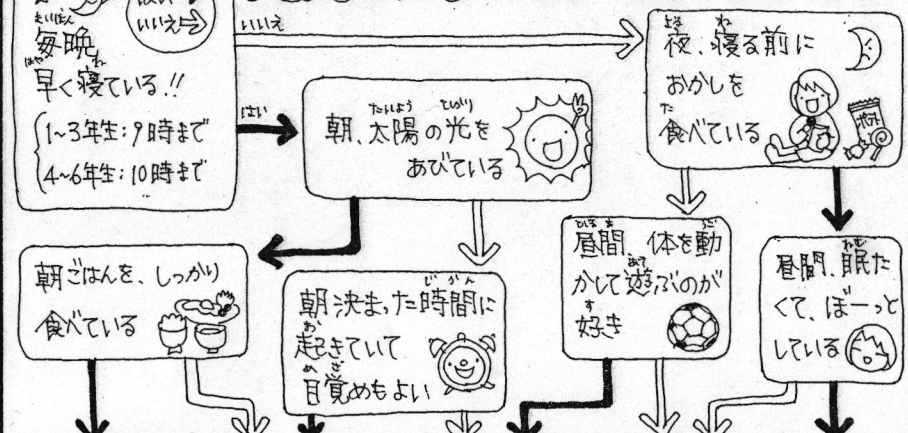 いいえ⇨
まいばん
毎晩
はや ね
早く寝ている!!
1~3年生:9時まで
4~6年生:10時まで
いいえ
はい
たいよう ひかり
朝、太陽の光を
あびている
よる ね
夜、寝る前に
おかしを
た
食べている
ポテト
朝ごはんを、しっかり
食べている
じかん
朝決まった時間に
お
起きていて
めざ
目覚めもよい
ひるま うご
昼間、体を動
あそ
かして遊ぶのが
す
好き
ねむ
昼間、眠た
くて、ぼーっと
している